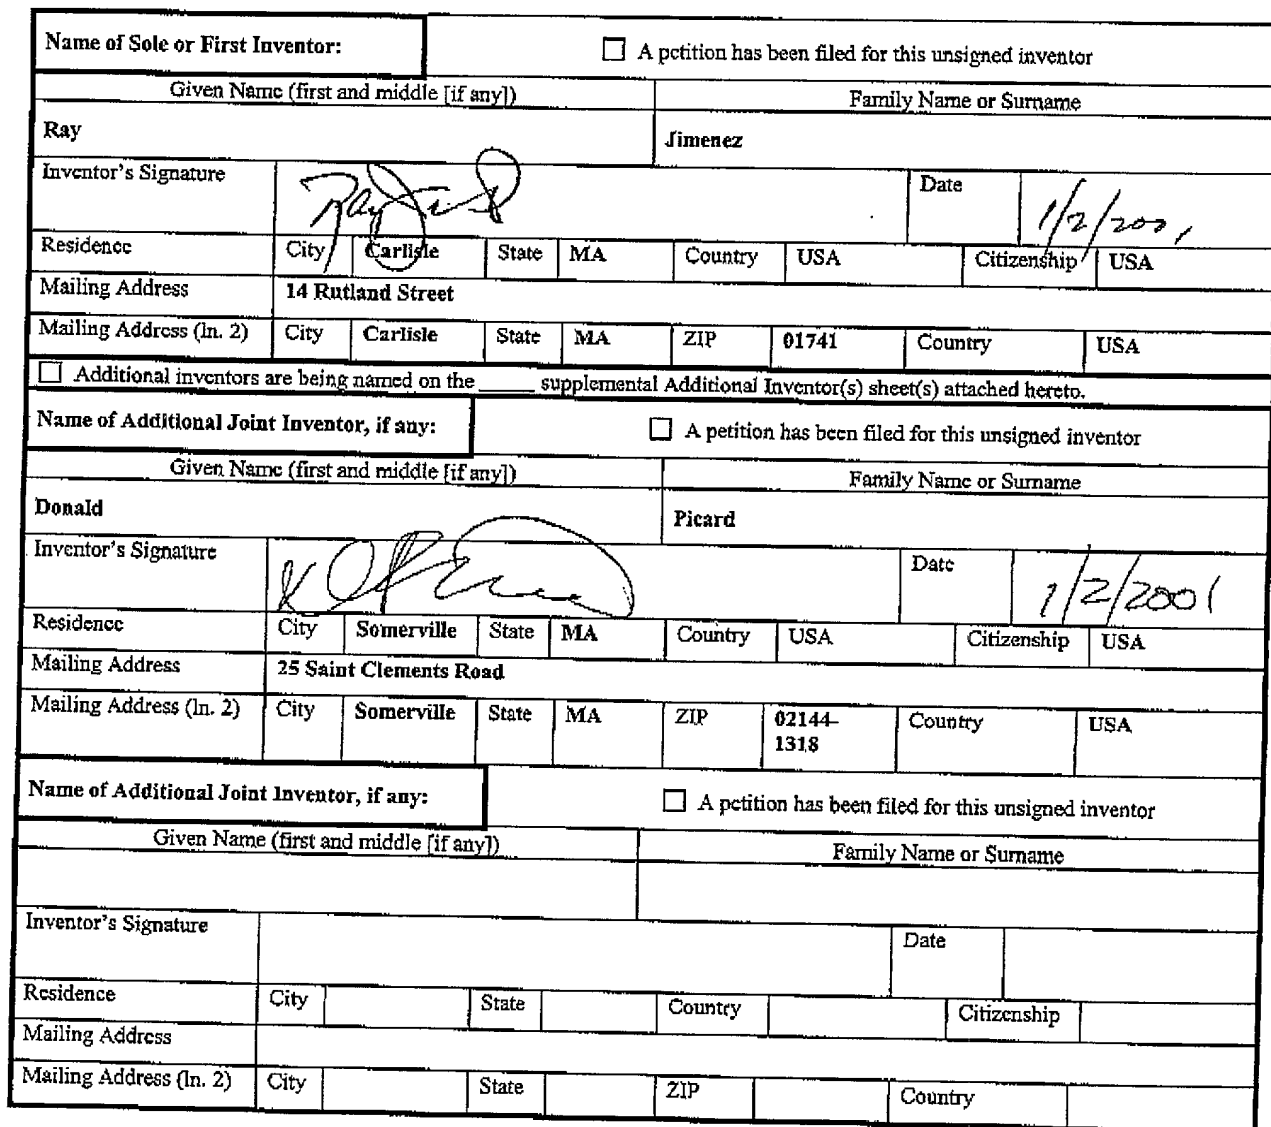 Name of Sole or First Inventor: A petition has been filed for this unsigned inventor
Given Name (first and middle [if any]) Family Name or Surname
Ray Jimenez
Inventor's Signature Date 1/2/2001
Residence City Carlisle State MA Country USA Citizenship USA
Mailing Address 14 Rutland Street
Mailing Address (ln. 2) City Carlisle State MA ZIP 01741 Country USA
Additional inventors are being named on the _____ supplemental Additional Inventor(s) sheet(s) attached hereto.
Name of Additional Joint Inventor, if any: A petition has been filed for this unsigned inventor
Given Name (first and middle [if any]) Family Name or Surname
Donald Picard
Inventor's Signature Date 1/2/2001
Residence City Somerville State MA Country USA Citizenship USA
Mailing Address 25 Saint Clements Road
Mailing Address (ln. 2) City Somerville State MA ZIP 02144-
1318 Country USA
Name of Additional Joint Inventor, if any: A petition has been filed for this unsigned inventor
Given Name (first and middle [if any]) Family Name or Surname
Inventor's Signature Date
Residence City State Country Citizenship
Mailing Address
Mailing Address (ln. 2) City State ZIP Country